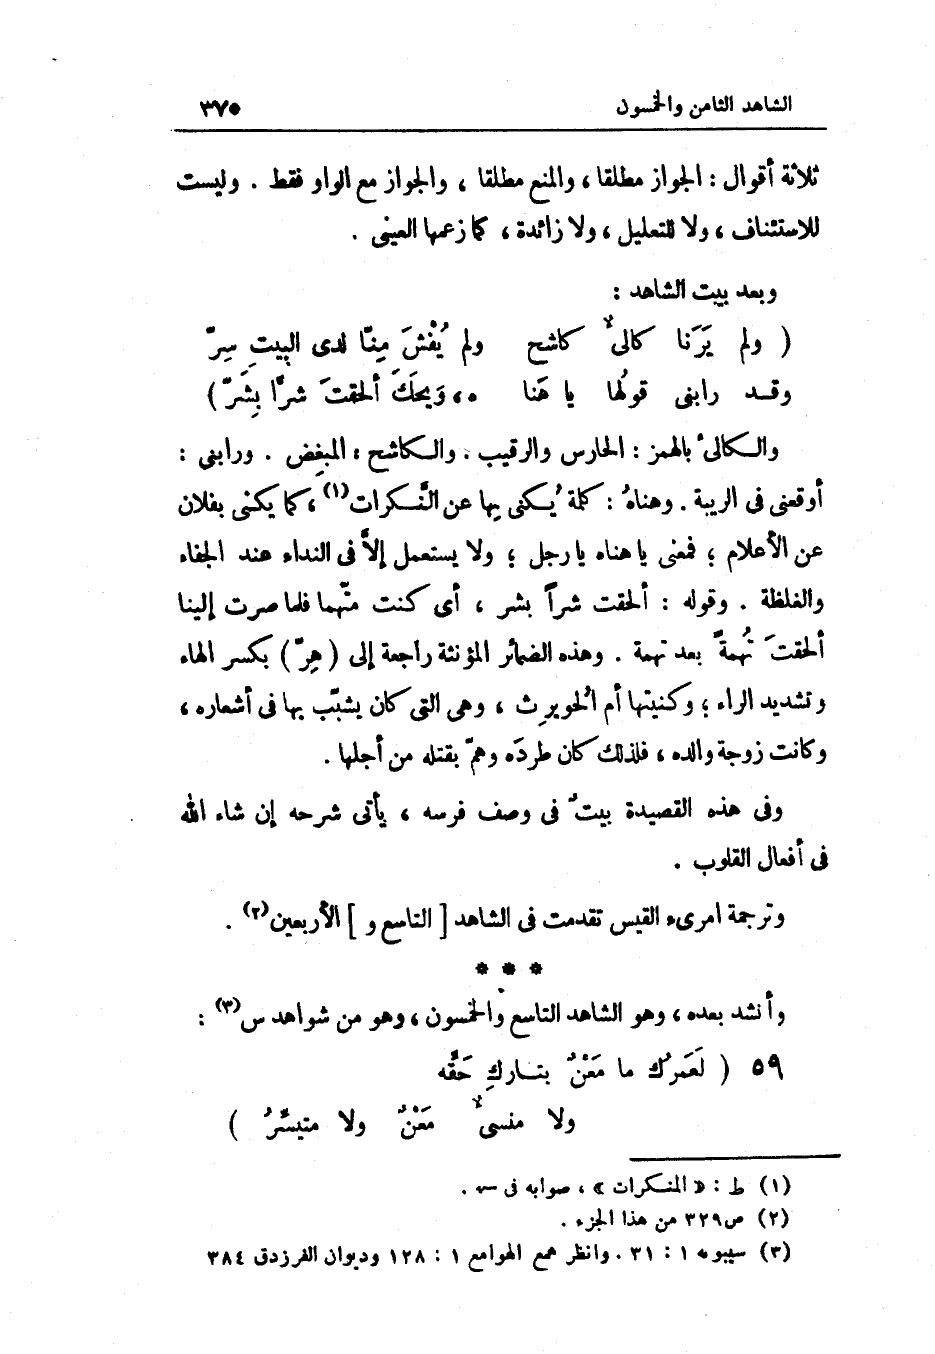 الشاهد الثامن والخمسون
٣٧٥
ثلاثة أقوال : الجواز مطلقا ، والمنع مطلقا ، والجواز مع الواو فقط . وليست
للاستئناف ، ولا للتعليل ، ولا زائدة ، كما زعمها العينى .
وبعد بيت الشاهد :
( ولم يَرَنا كالئٌ كاشح ولم يُفْشَ مِنّا لدى البيتِ سِرّ
وقد رابنى قولُها يا هَنا ه ، وَيحكَ ألحقتَ شرًّا بِشَرّ )
والكالئ بالهمز : الحارس والرقيب . والكاشح : المبغِض . ورابنى :
أوقعنى فى الريبة . وهناهُ : كلمة يُكنى بِها عن النَّكرات(١) ، كما يكنى بفلان
عن الأعلام ؛ فمعنى يا هناه يا رجل ؛ ولا يستعمل إلاَّ فى النداء عند الجفاء
والغلظة . وقوله : ألحقت شراً بشر ، أى كنت متّهما فلما صرت إلينا
ألحقتَ تُهمةً بعد تهمة . وهذه الضمائر المؤنثة راجعة إلى ( هِرّ ) بكسر الهاء
وتشديد الراء ؛ وكنيتها أم الحُويرِث ، وهى التى كان يشبّب بها فى أشعاره ،
وكانت زوجة والده ، فلذلك كان طردَه وهمّ بقتله من أجلها .
وفى هذه القصيدة بيتٌ فى وصف فرسه ، يأتى شرحه إن شاء الله
فى أفعال القلوب .
وترجمة امرىء القيس تقدمت فى الشاهد [ التاسع و ] الأربعين(٢) .
* * *
وأنشد بعده ، وهو الشاهد التاسع والخمسون ، وهو من شواهد س(٣) :
٥٩ ( لَعَمرُك ما مَعْنٌ بتاركِ حَقَّه
ولا منسئٌ مَعْنٌ ولا متيسِّرُ )
(١) ط : « المنكرات » ، صوابه فى سـ .
(٢) ص٣٢٩ من هذا الجزء .
(٣) سيبويه ١ : ٣١ . وانظر همع الهوامع ١ : ١٢٨ وديوان الفرزدق ٣٨٤